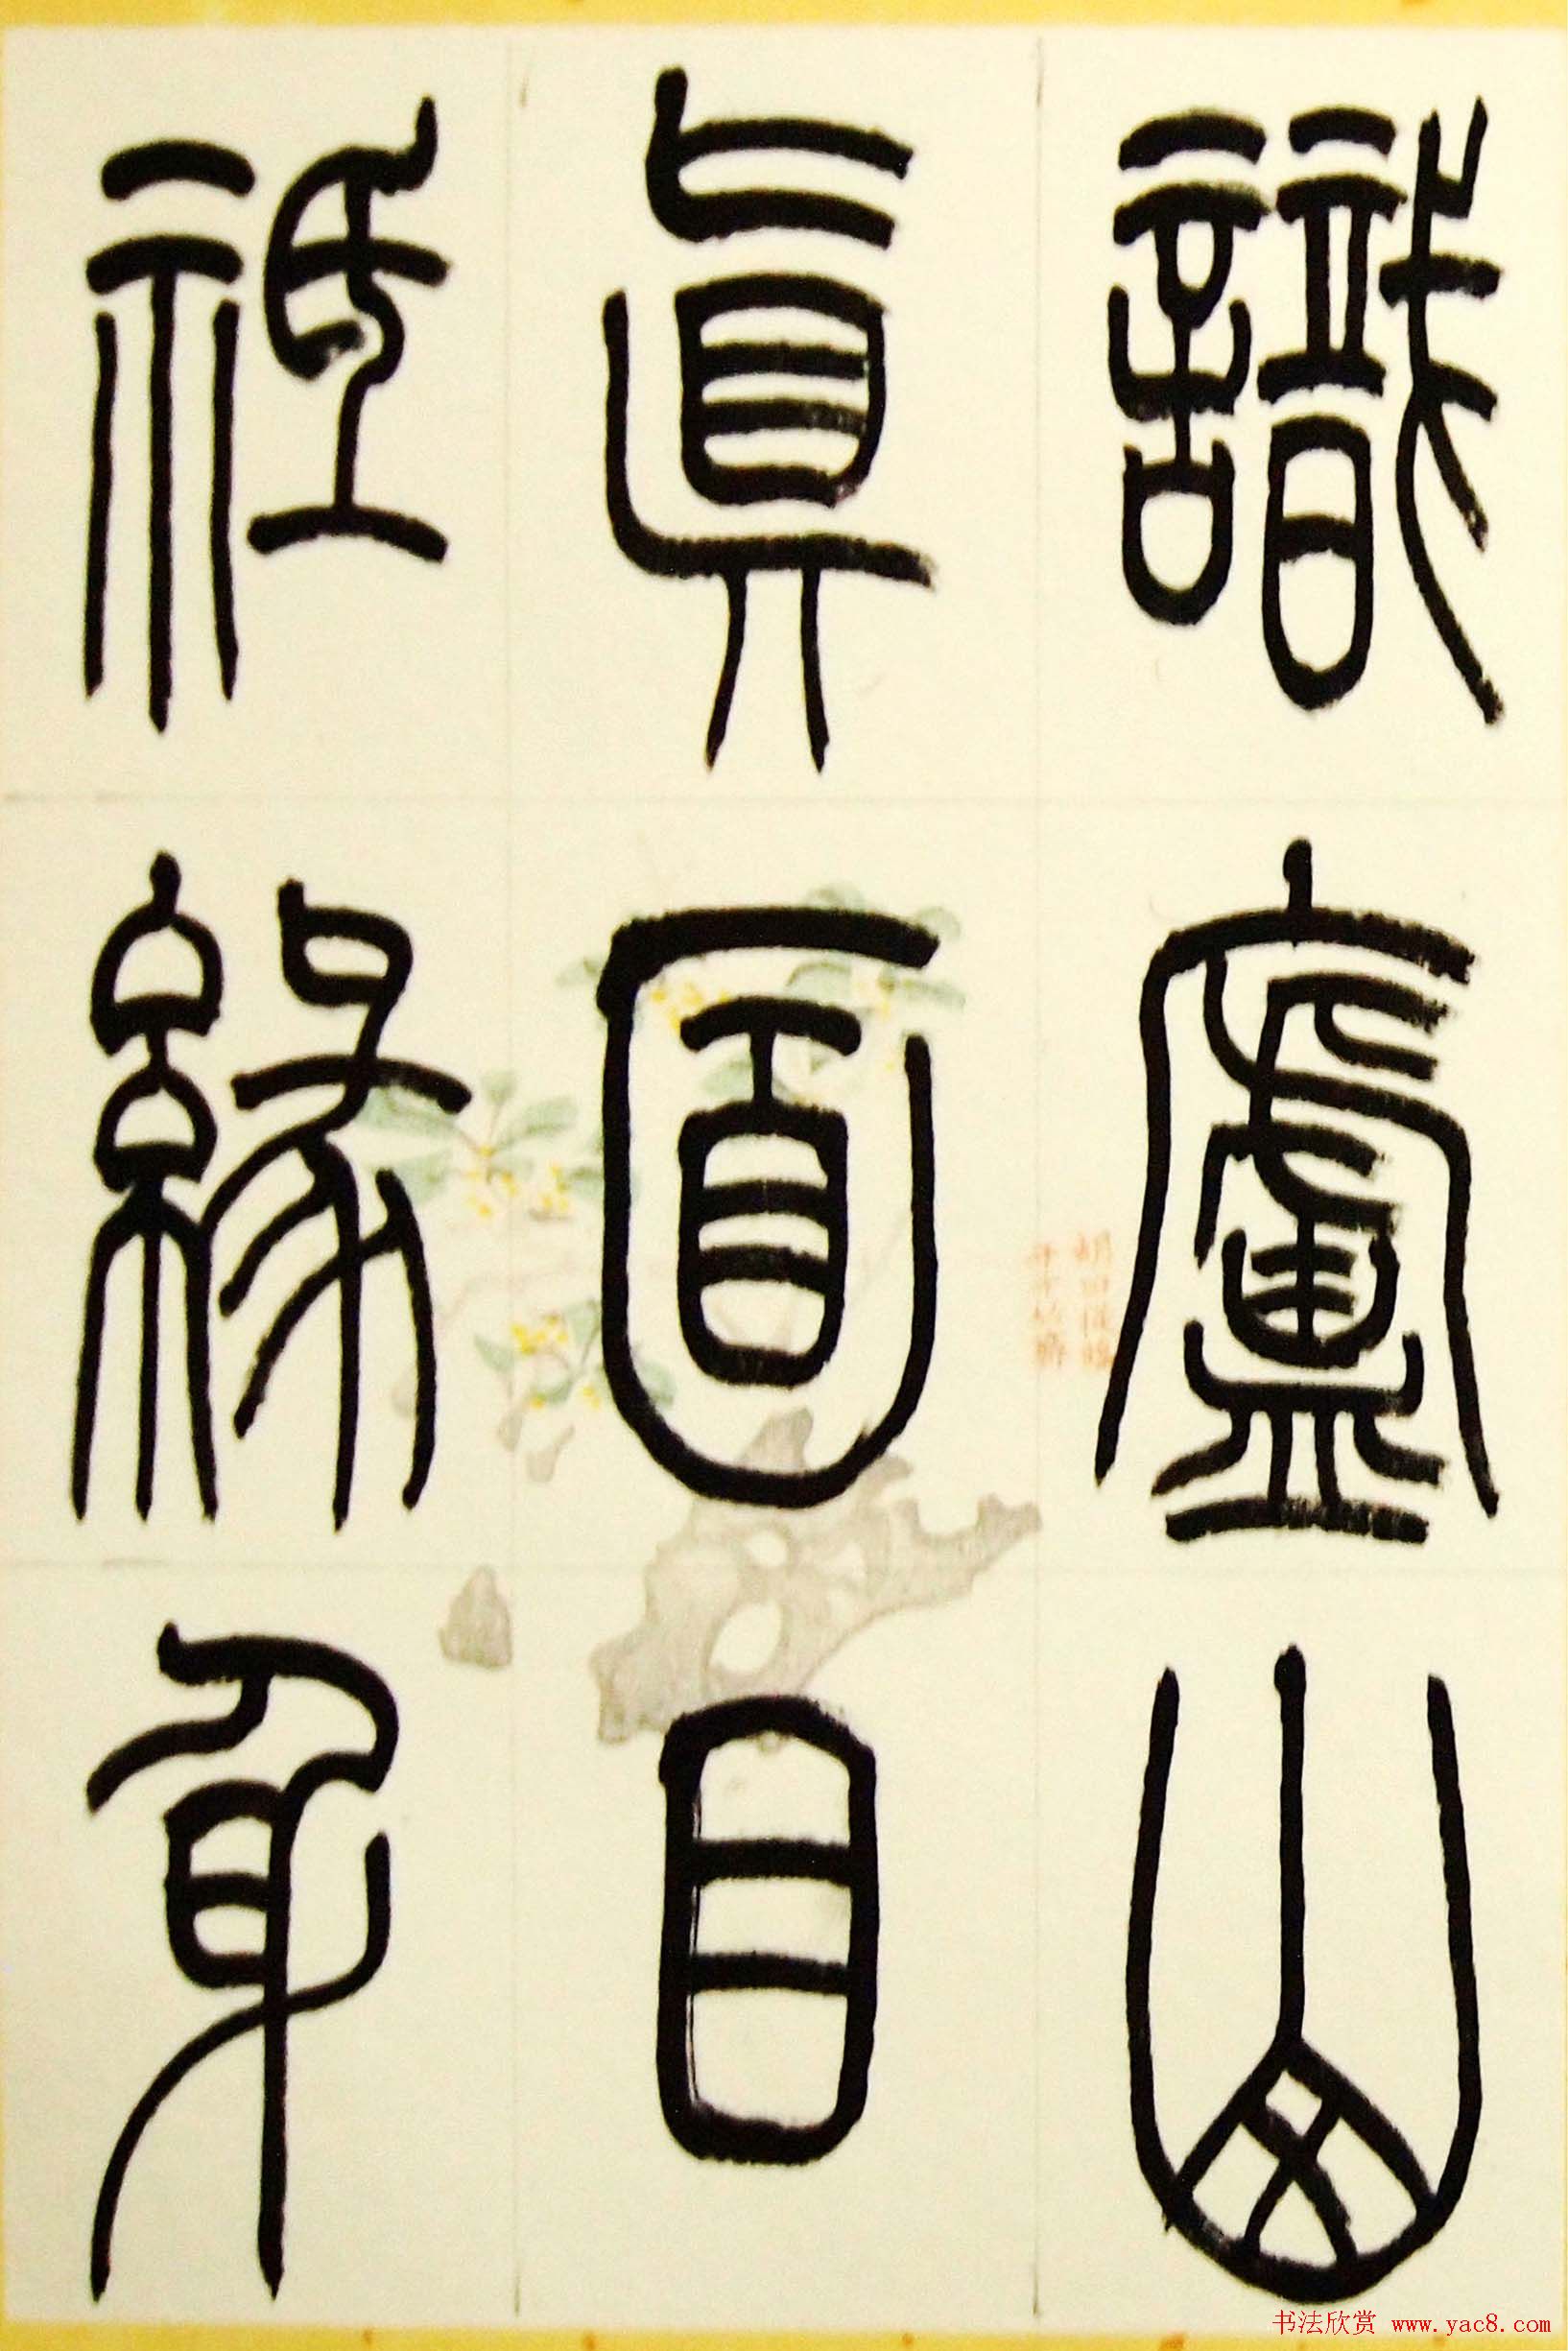 識廬山
真面目
祗緣身
书法欣赏 www.yac8.com